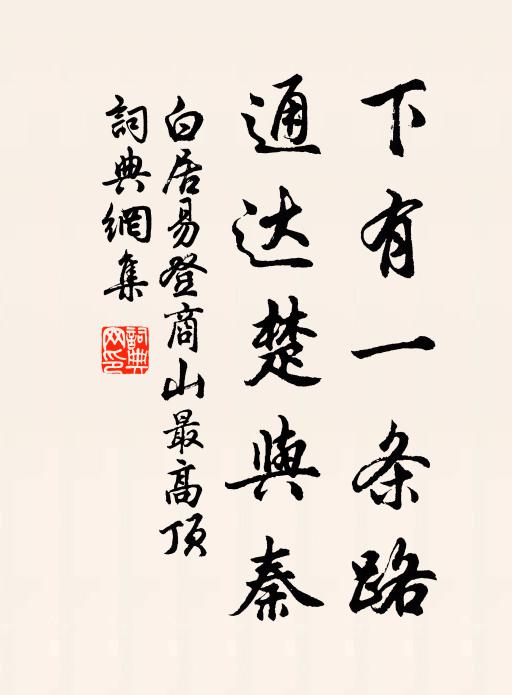 下有一条路
通达楚與秦
白居易登商山最高頂
詞典網集
詞典網印